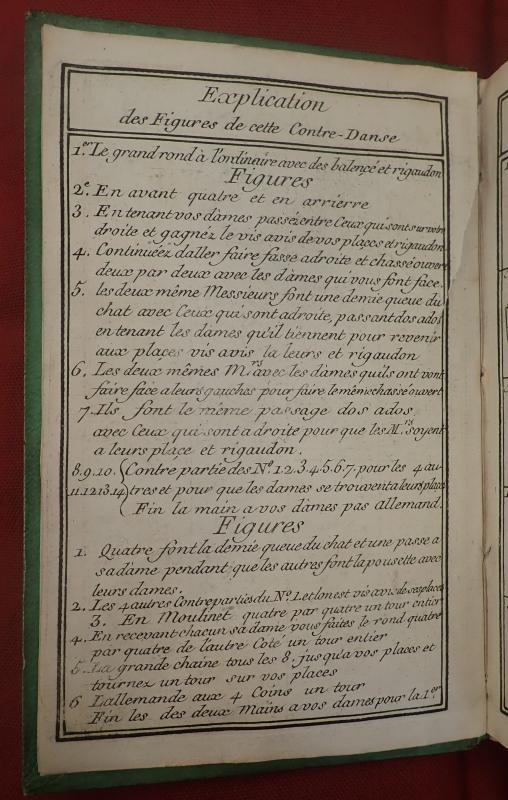 Explication
des Figures de cette Contre-Danse
1.er Le grand rond à l'ordinaire avec des balencé et rigaudon
Figures
2.e En avant quatre et en arrierre
3. En tenant vos dames passéz entre Ceux qui sont sur votre
droite et gagnéz le vis avis de vos plaçes et rigaudon
4. Continuéez d'aller faire fasse adroite et chassé ouvert
deux par deux avec les d'ames qui vous font face.
5. les deux même Messieurs font une demie queue du
chat avec Ceux qui sont adroite, passant dos ados
en tenant les dames qu'il tiennent pour revenir
aux places vis avis la leurs et rigaudon
6. Les deux mêmes M.rs avec les d'ames quils ont vont
faire face a leurs gauches pour faire le même chassé ouvert
7. Ils font le même passage dos ados
avec Ceux qui sont a droite pour que les M.rs soyent
a leurs place et rigaudon.
8.9.10. Contre partie des N.o 1.2.3.4.5.6.7. pour les 4 au-
11.12.13.14 tres et pour que les dames se trouvent a leurs places
Fin la main a vos dames pas allemand.
Figures
1. Quatre font la demie queue du chat et une passe a
sa dame pendant que les autres font la pousette avec
leurs dames.
2. Les 4 autres Contreparties du N.o 1. et lon est vis avis de sa places
3. En Moulinet quatre par quatre un tour entier
4. En recevant chacun sa dame vous faites le rond quatre
par quatre de l'autre Coté un tour entier
5. La grande chaine tous les 8. jusqu'a vos places et
tournez un tour sur vos places
6 L'allemande aux 4 Coins un tour
Fin les des deux Mains a vos dames pour la 1.er